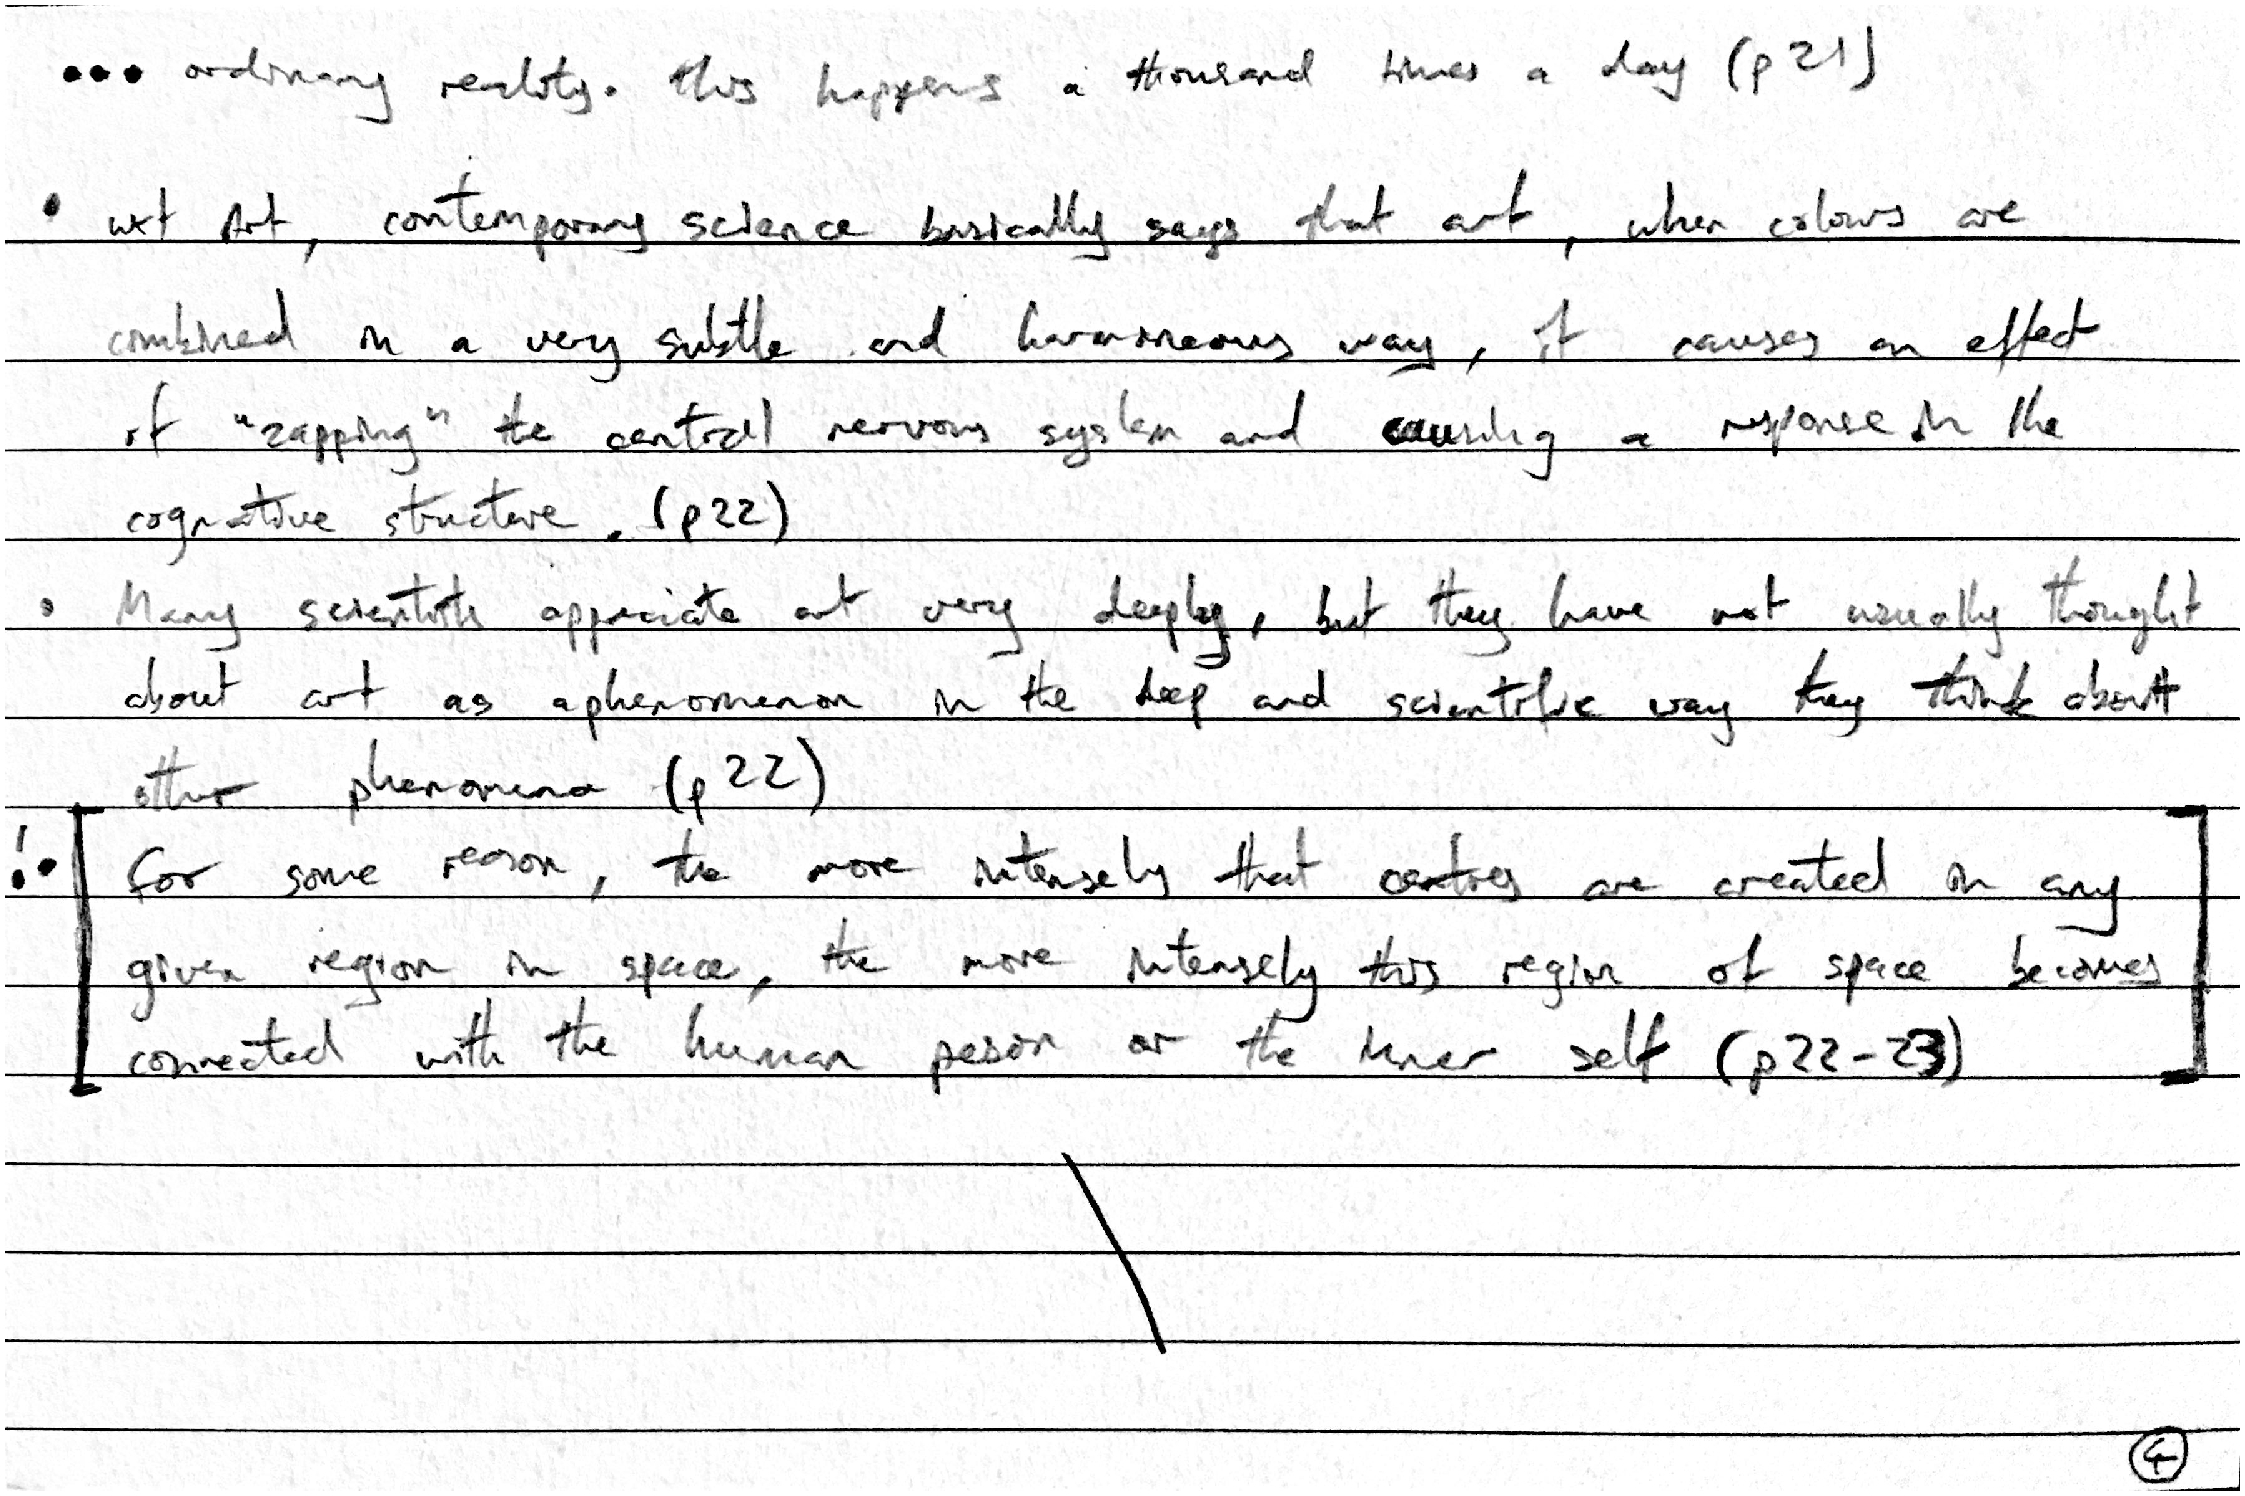 ••• ordinary reality. this happens a thousand times a day (p21)
• wrt Art, contemporary science basically says that art, when colours are
combined in a very subtle and harmoneous way, it causes an effect
of "zapping" the central nervous system and causing a response in the
cognative structure. (p22)
• Many scientists appreciate art very deeply, but they have not usually thought
about art as a phenomenon in the deep and scientific way they think about
other phenomena (p22)
!• [ for some reason, the more intensely that centres are created in any
given region in space, the more intensely this region of space becomes
connected with the human person or the inner self (p22-23) ]
4